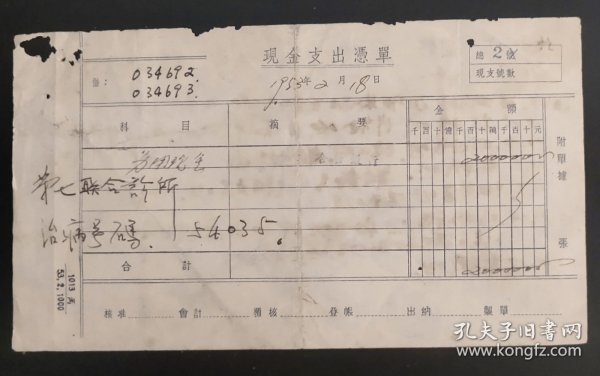 現金支出憑單
034692.
034693.
1953年2月18日
總2號
現支號數
科目
摘要
金額
千百十億千百十萬千百十元
附單據 張
第七联合診所
治病号碼. 54035.
合計
1013 天
53.2.1000
核准 會計 稽核 登帳 出納 製單
孔夫子旧書网
www.kongfz.com